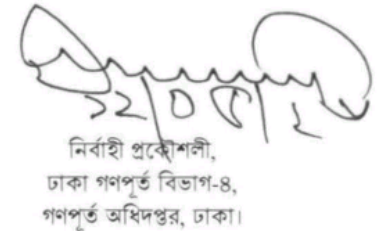 নির্বাহী প্রকৌশলী,
ঢাকা গণপূর্ত বিভাগ-৪,
গণপূর্ত অধিদপ্তর, ঢাকা।